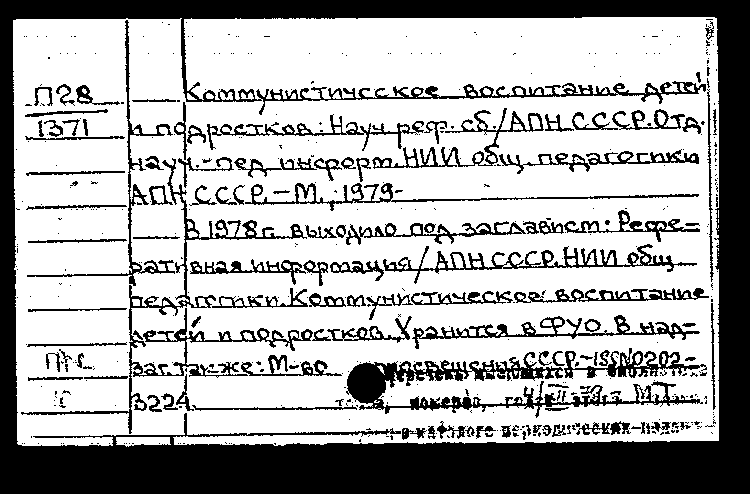 П28 Коммунистическое воспитание детей
1371 и подростков: Науч. реф. сб./АПН СССР. Отд.
науч.-пед. информ. НИИ общ. педагогики
АПН СССР. – М., 1979-
В 1978 г. выходило под заглавием: Рефе=
ративная информация/АПН СССР. НИИ общ.
педагогики. Коммунистическое воспитание
детей и подростков. Хранится в ФУО. В над=
заг. также: М-во просвещения СССР. – ISSN 0202-
3224.
Перечень имеющихся в библиотеке
номеров,
и в каталоге периодических изданий